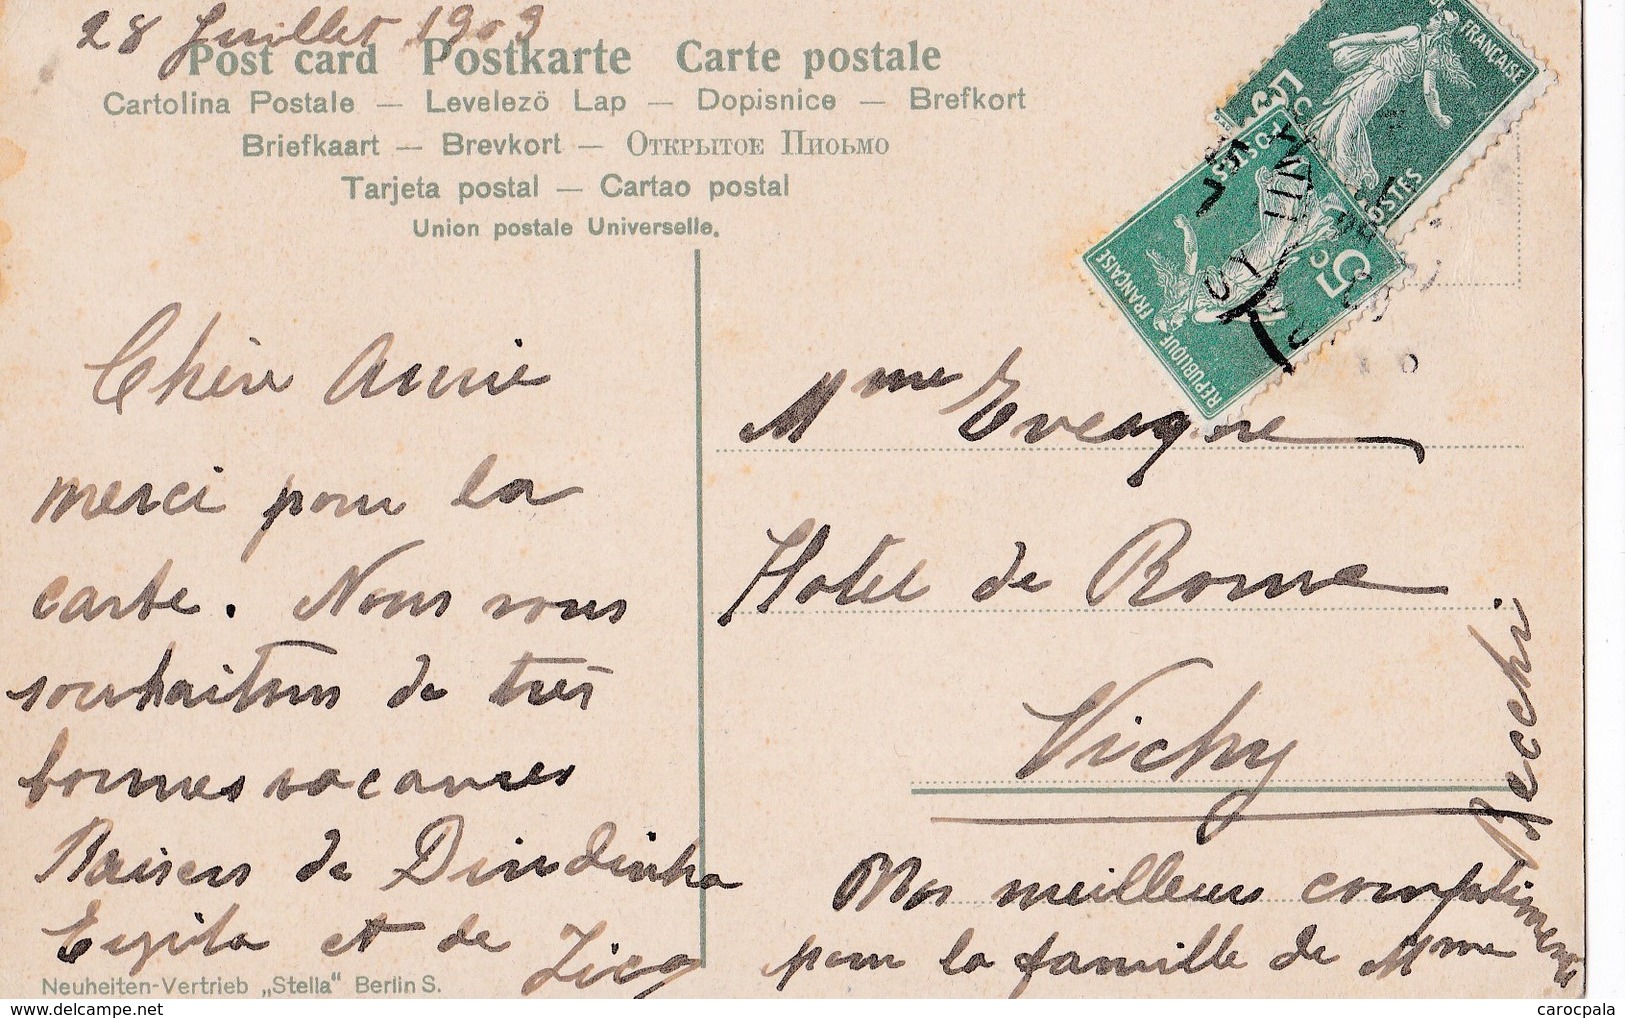 28 Juillet 1909
Post card Postkarte Carte postale
Cartolina Postale — Levelezö Lap — Dopisnice — Brefkort
Briefkaart — Brevkort — Открытое Письмо
Tarjeta postal — Cartao postal
Union postale Universelle.
REPUBLIQUE FRANÇAISE
POSTES
5c
FRANÇAISE
POSTES
5c
Chère Annie
merci pour la
carte. Nous vous
souhaitons de très
bonnes vacances
Baisers de Dindinha
et de Zica
Mme
Hotel de Rome
Vichy
Nos meilleurs compliments
pour la famille de Mme
Neuheiten-Vertrieb „Stella“ Berlin S.
carocpala